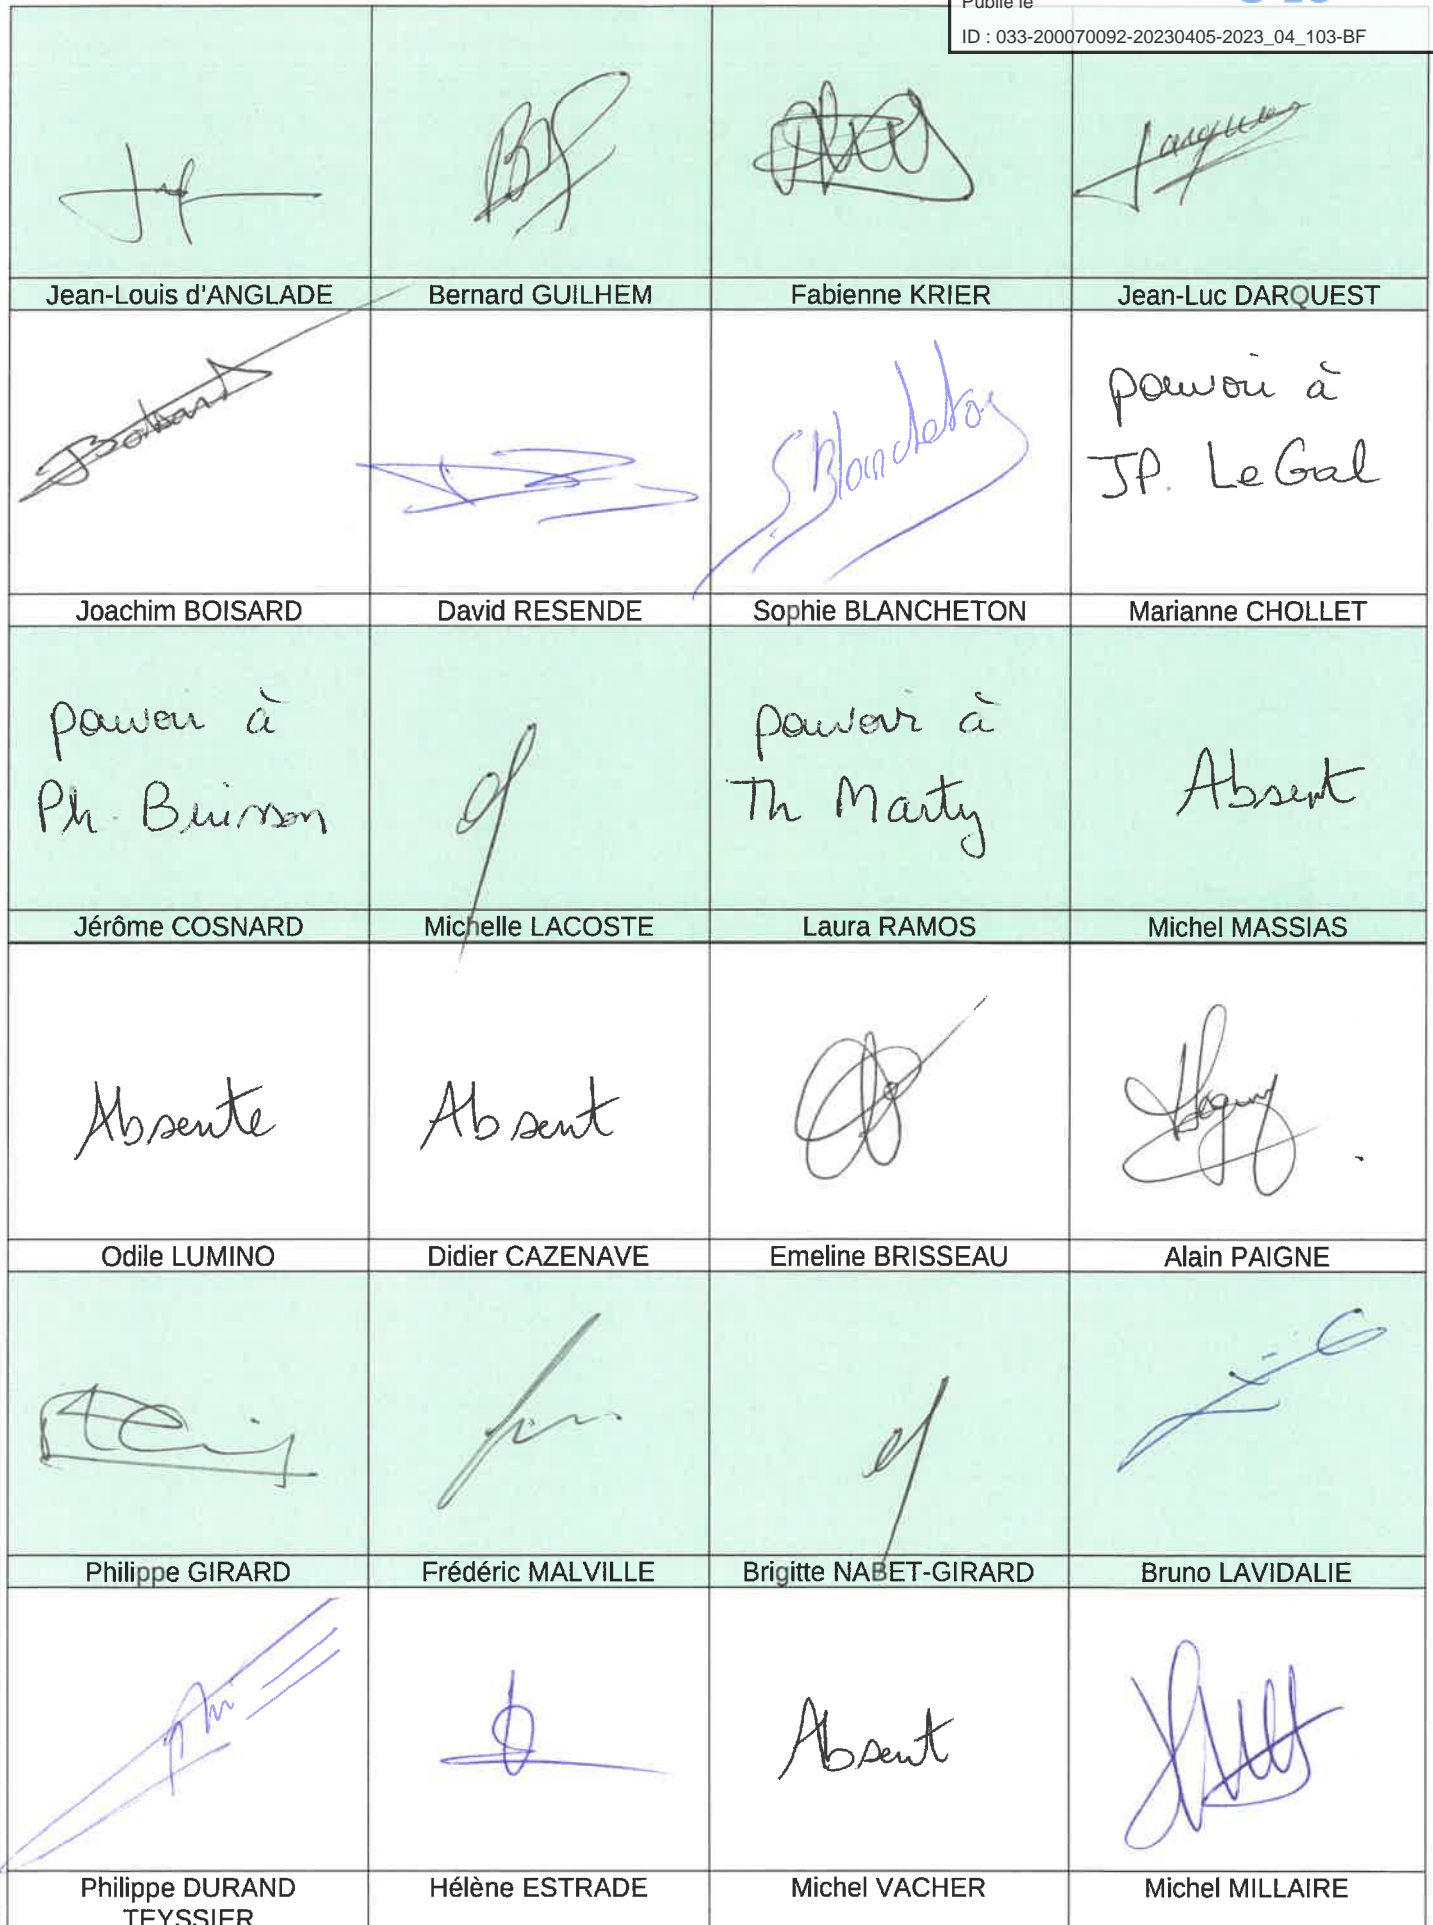 Publié le
ID : 033-200070092-20230405-2023_04_103-BF
Jean-Louis d'ANGLADE Bernard GUILHEM Fabienne KRIER Jean-Luc DARQUEST
S. Blancheton
pouvoir à
JP. Le Gal
Joachim BOISARD David RESENDE Sophie BLANCHETON Marianne CHOLLET
pouvoir à
Ph. Buisson
pouvoir à
Th Marty
Absent
Jérôme COSNARD Michelle LACOSTE Laura RAMOS Michel MASSIAS
Absente
Absent
Odile LUMINO Didier CAZENAVE Emeline BRISSEAU Alain PAIGNE
Philippe GIRARD Frédéric MALVILLE Brigitte NABET-GIRARD Bruno LAVIDALIE
Absent
Philippe DURAND
TEYSSIER
Hélène ESTRADE Michel VACHER Michel MILLAIRE